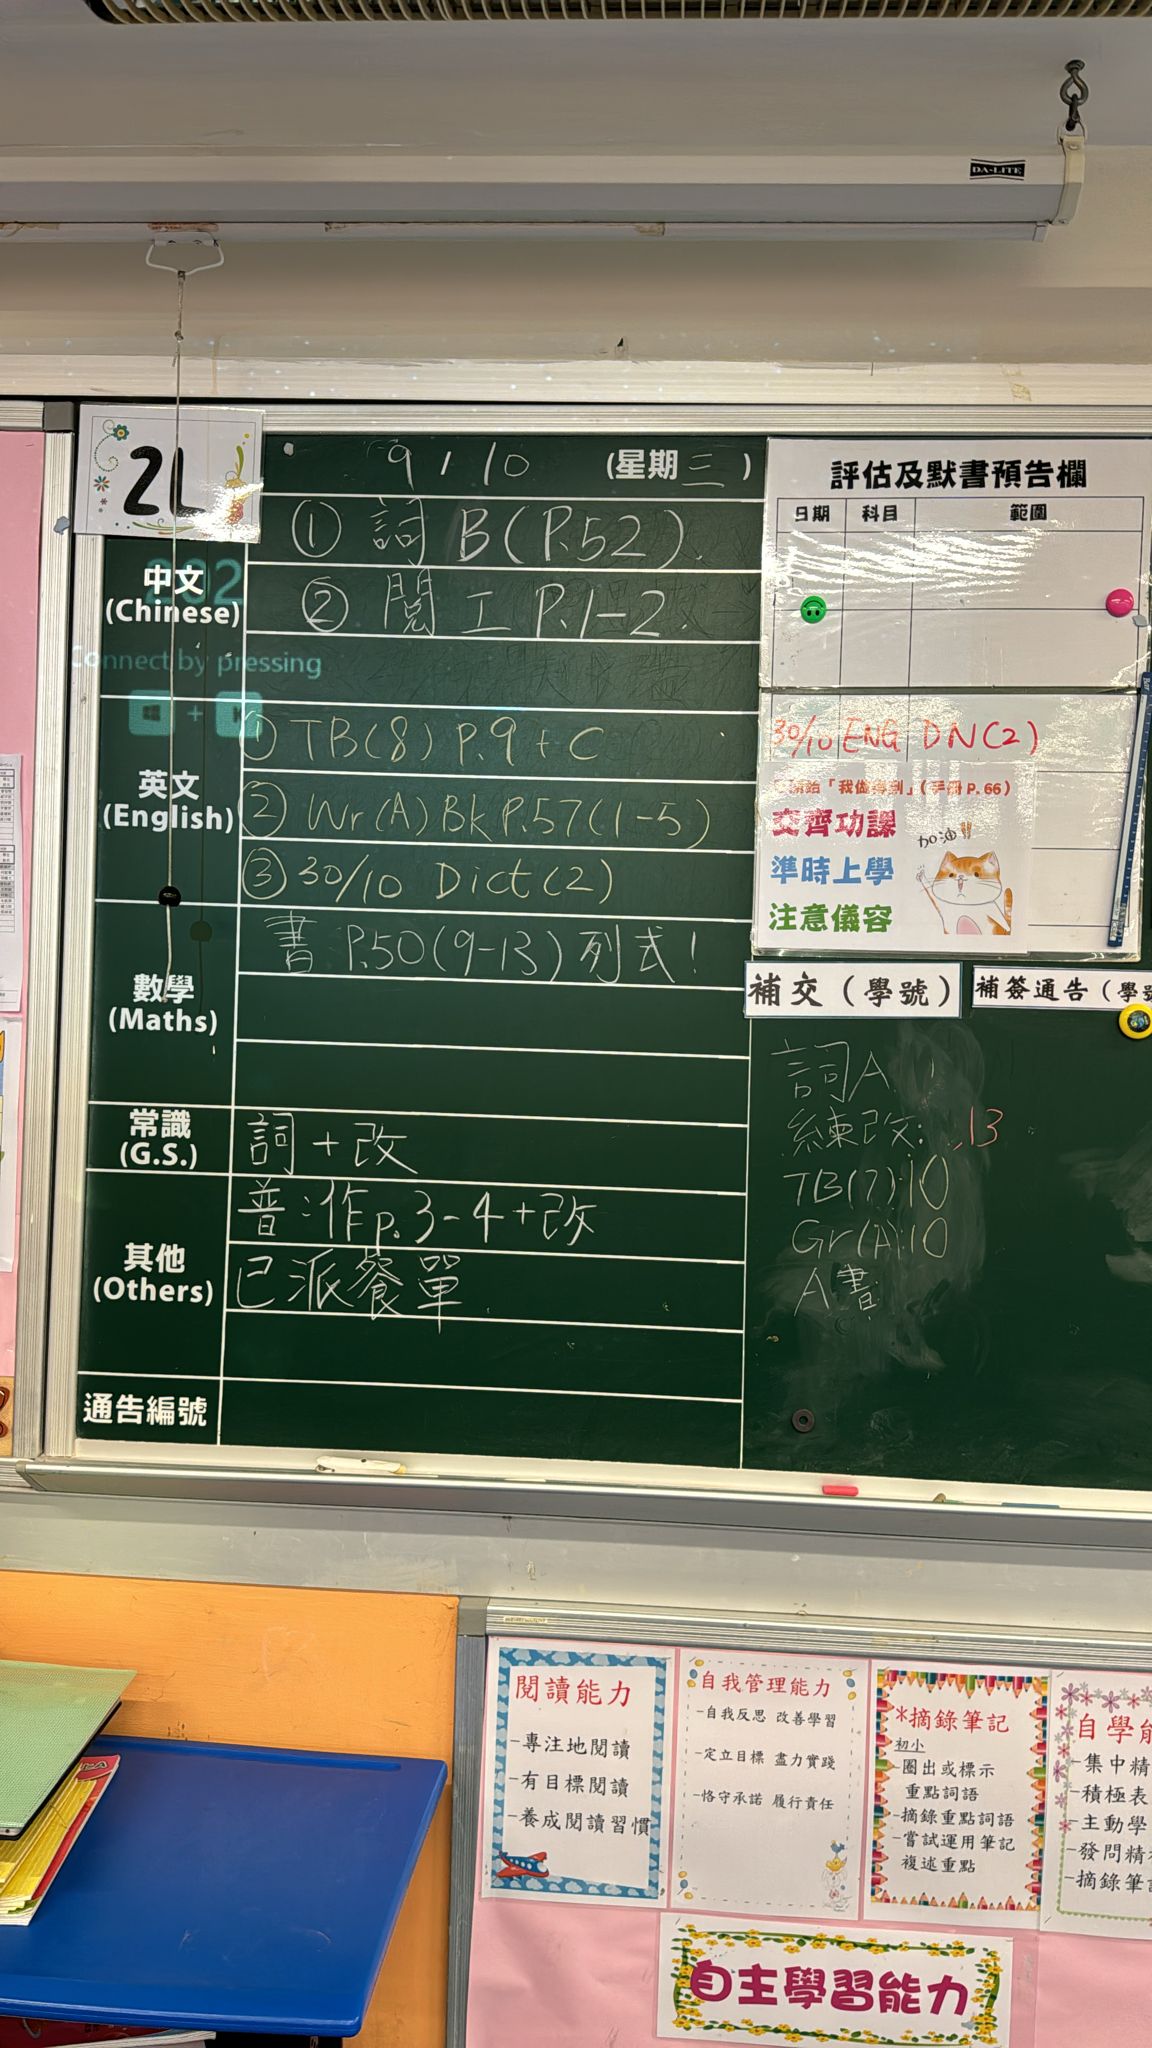 DA-LITE
2L
9 / 10 (星期三)
中文
(Chinese)
① 詞 B (P.52).
② 閱工 P.1-2.
Connect by pressing
英文
(English)
① TB(8) P.9 + C
② Wr(A) Bk P.57(1-5)
③ 30/10 Dict(2)
數學
(Maths)
書 P.50(9-13) 列式!
常識
(G.S.)
詞 + 改
其他
(Others)
普:作p.3-4+改
已派餐單
通告編號
評估及默書預告欄
日期 科目 範圍
30/10 ENG DN(2)
「我做得到」(手冊 P. 66)
交齊功課
加油!!
準時上學
注意儀容
補交(學號)
補簽通告(學號
詞A
練改: 13
TB(7):10
Gr(A):10
A書
閱讀能力
-專注地閱讀
-有目標閱讀
-養成閱讀習慣
自我管理能力
-自我反思 改善學習
-定立目標 盡力實踐
-恪守承諾 履行責任
*摘錄筆記
初小
-圈出或標示
重點詞語
-摘錄重點詞語
-嘗試運用筆記
複述重點
自學能
-集中精
-積極表
-主動學
-發問精
-摘錄筆
自主學習能力